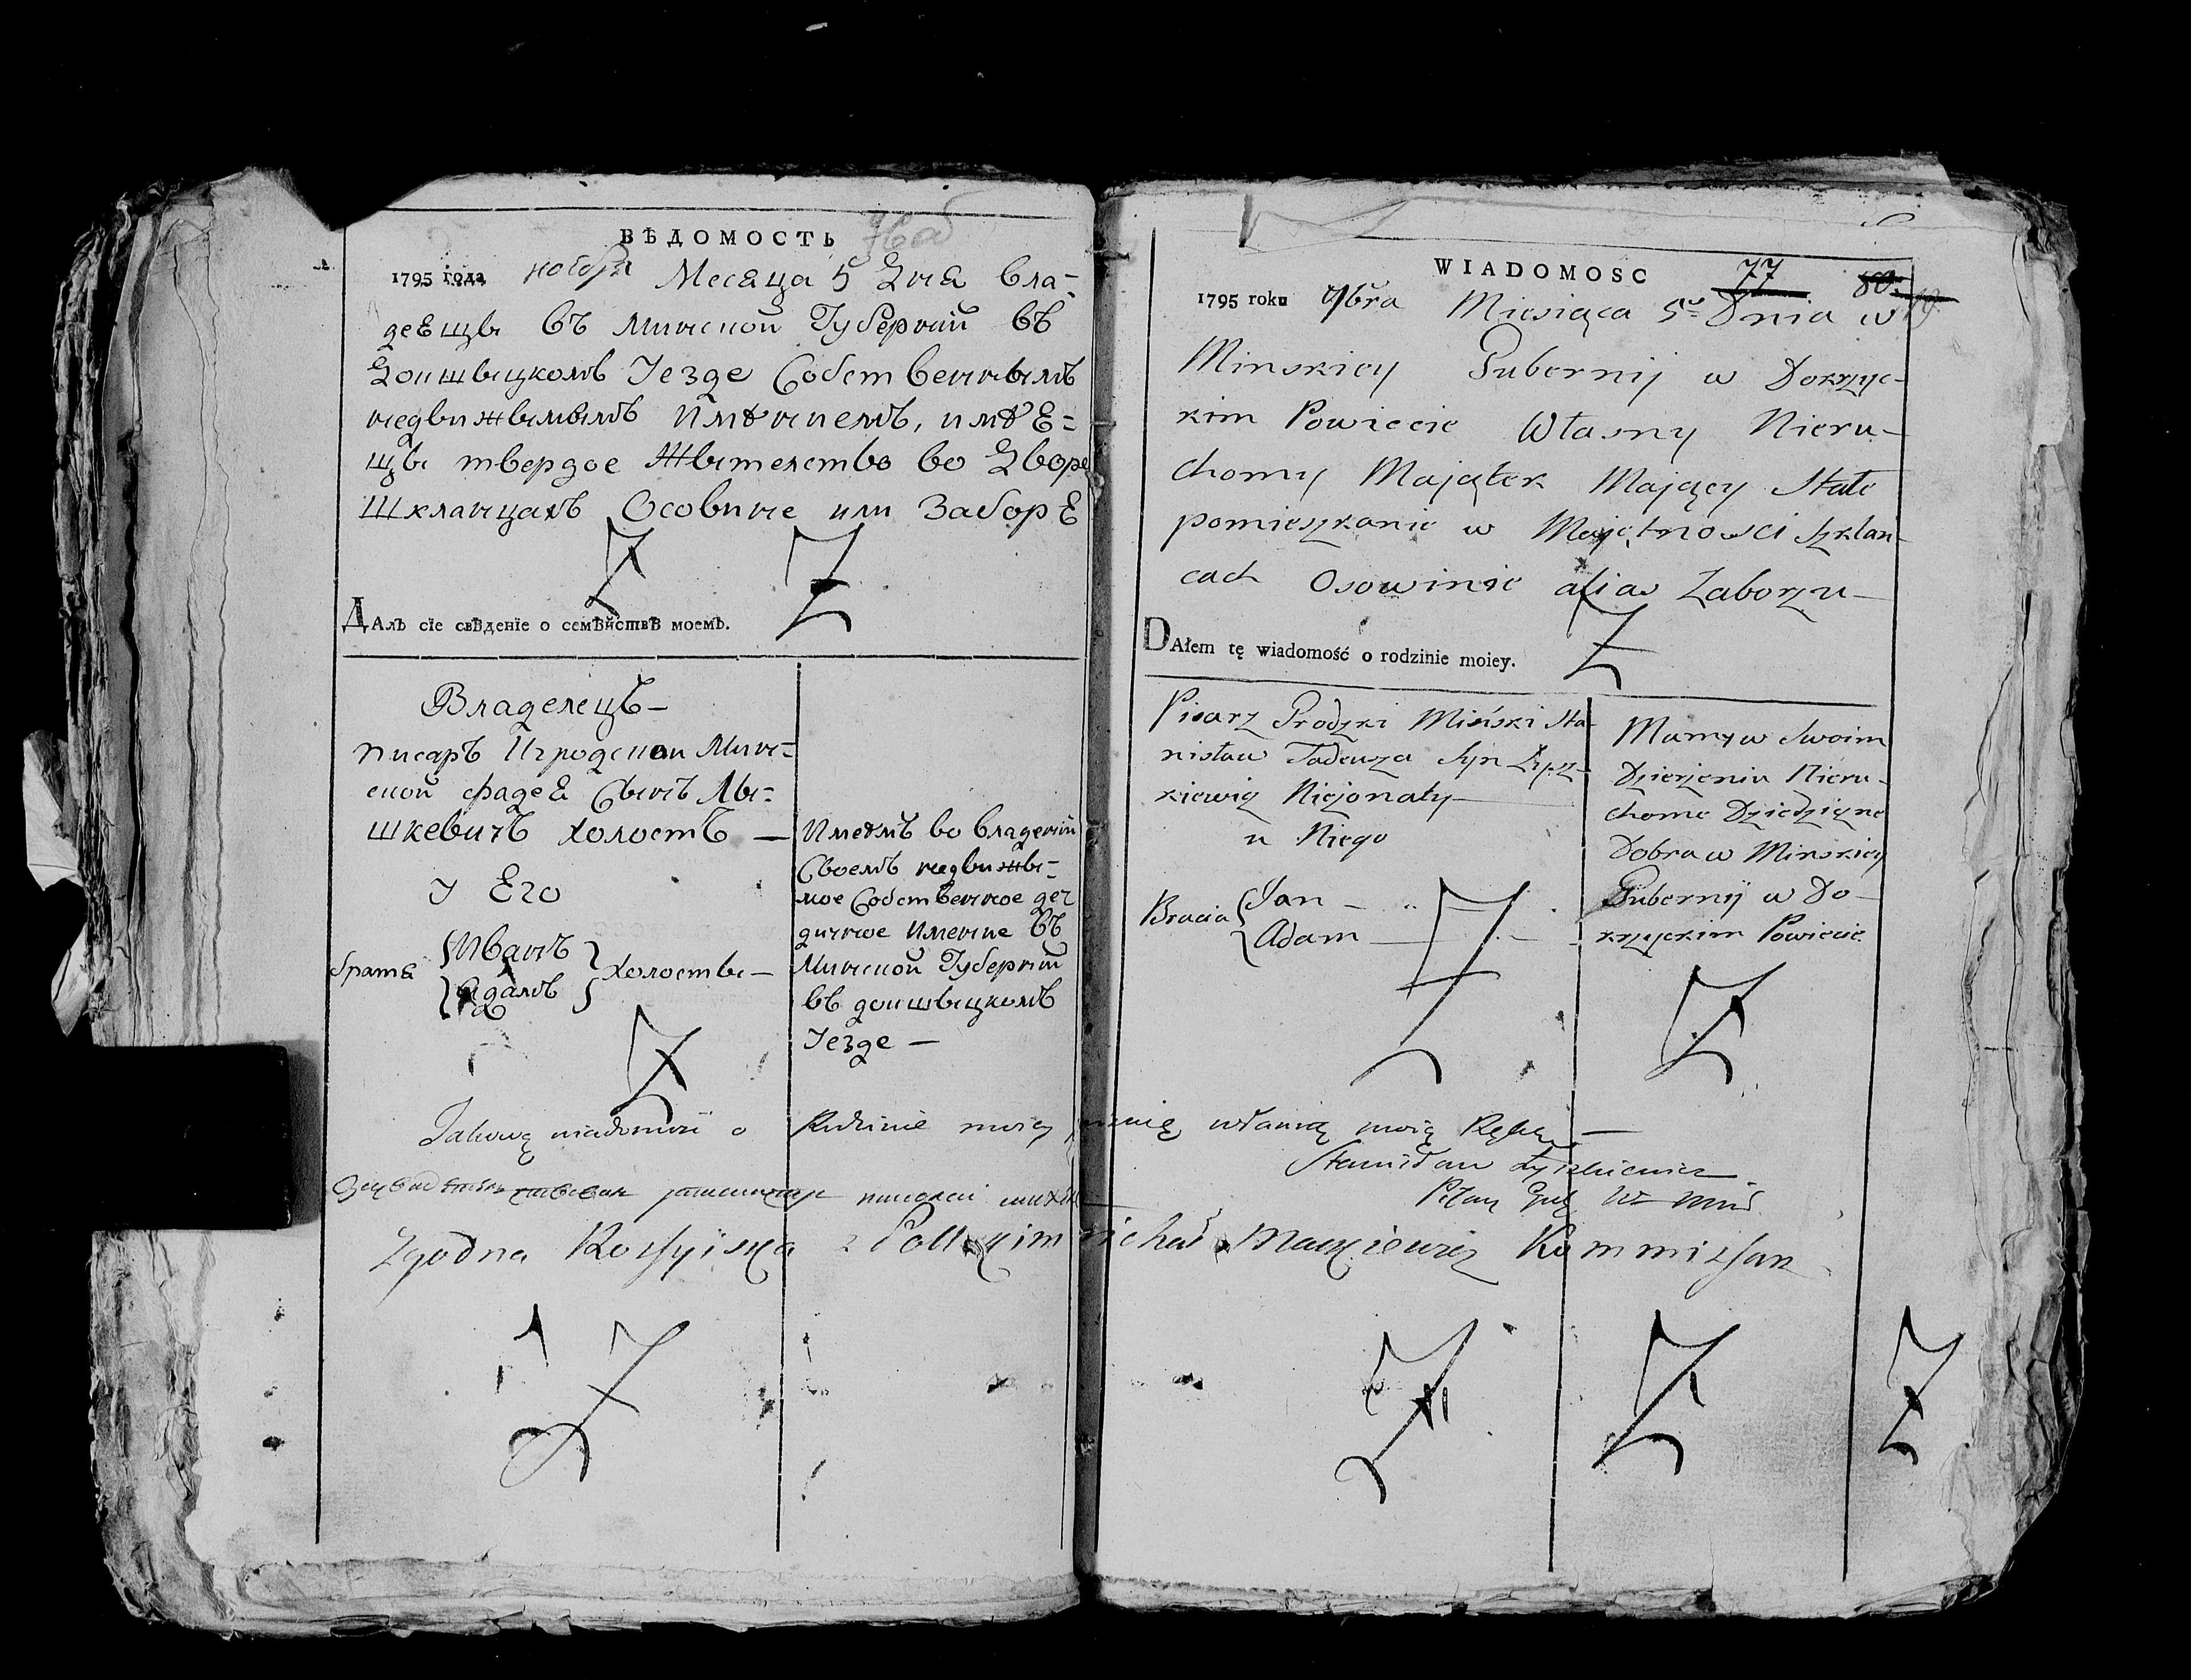 ВѢДОМОСТЬ
1795 года ноебря Месяца 5 Дня Вла-
деещы въ Минской Губерний въ
Докшыцкомъ Уезде Собственнымъ
недвижымымъ Имѣниемъ, имѣе=
щы твердое Жытелство во Дворе
Шкланцахъ Осовине или Заборе
Далъ сїе свѣденїе о семѣйствѣ моемъ.
Владелецъ-
писаръ Игродской Минс=
ской Фадея Сынъ Лы=
шкевичъ холостъ —
У Его
братя Иванъ
Адамъ
холосты —
Имеемъ во владений
Своемъ недвижы-
мое Собственное де
дичное Имение въ
Минской Губерний
въ докшыцкомъ
Уезде —
WIADOMOSC 77 80
1795 roku 9bra Miesiąca 5 Dnia w
Minskiey Gubernij w Dokrzyc-
kim Powiecie Własny Nieru-
chomy Majątek Mający Stałe
pomieszkanie w Majętnosci Szklan-
cach Osowinie alias Zaborzu-
DAłem tę wiadomość o rodzinie moiey.
Pisarz Grodzki Miński Sta-
nisław Tadeusza Syn Łysz-
kiewicz Nieżonaty-
u Niego
Bracia Jan -
Adam
Mamy w Swoim
Dzierżeniu Nieru-
chome Dziedziczne
Dobra w Minskiey
Gubernij w Do-
krzyckim Powiecie
Takową wiadomość o Rodzinie moiey własną moią Ręką
Stanisław Łyszkiewicz
Zgodna Rossyiska z Polskim Michał Mackiewicz Kommissarz